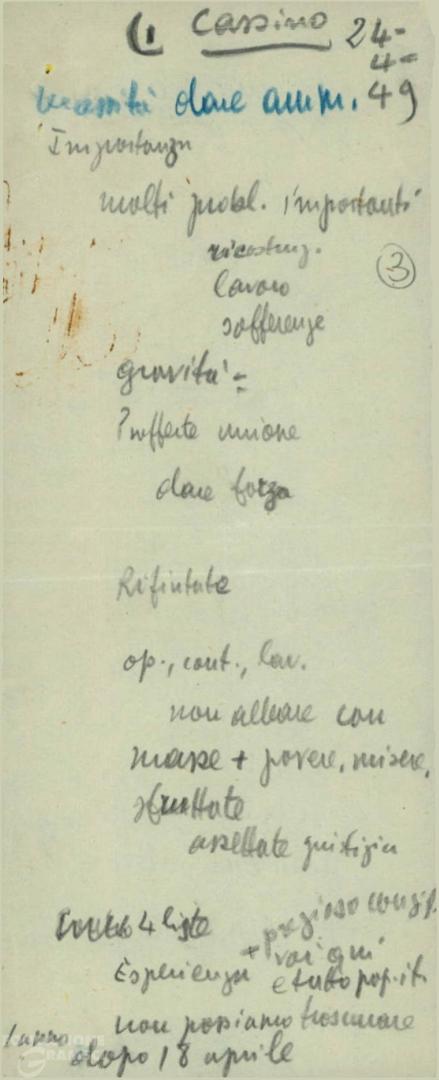 (1 Cassino 24-
4-
49
necessità dare amm.
Importanza
molti probl. importanti
ricostruz.
lavoro
3
sofferenze
gravità =
Profferte unione
dare forza
Rifiutate
op., cont., lav.
non alleare con
masse + povere, misere,
sfruttate
assettate giustizia
4 liste
+ prezioso
voi qui
Esperienza e tutto pop. it.
non possiamo trascurare
1 anno dopo 18 aprile